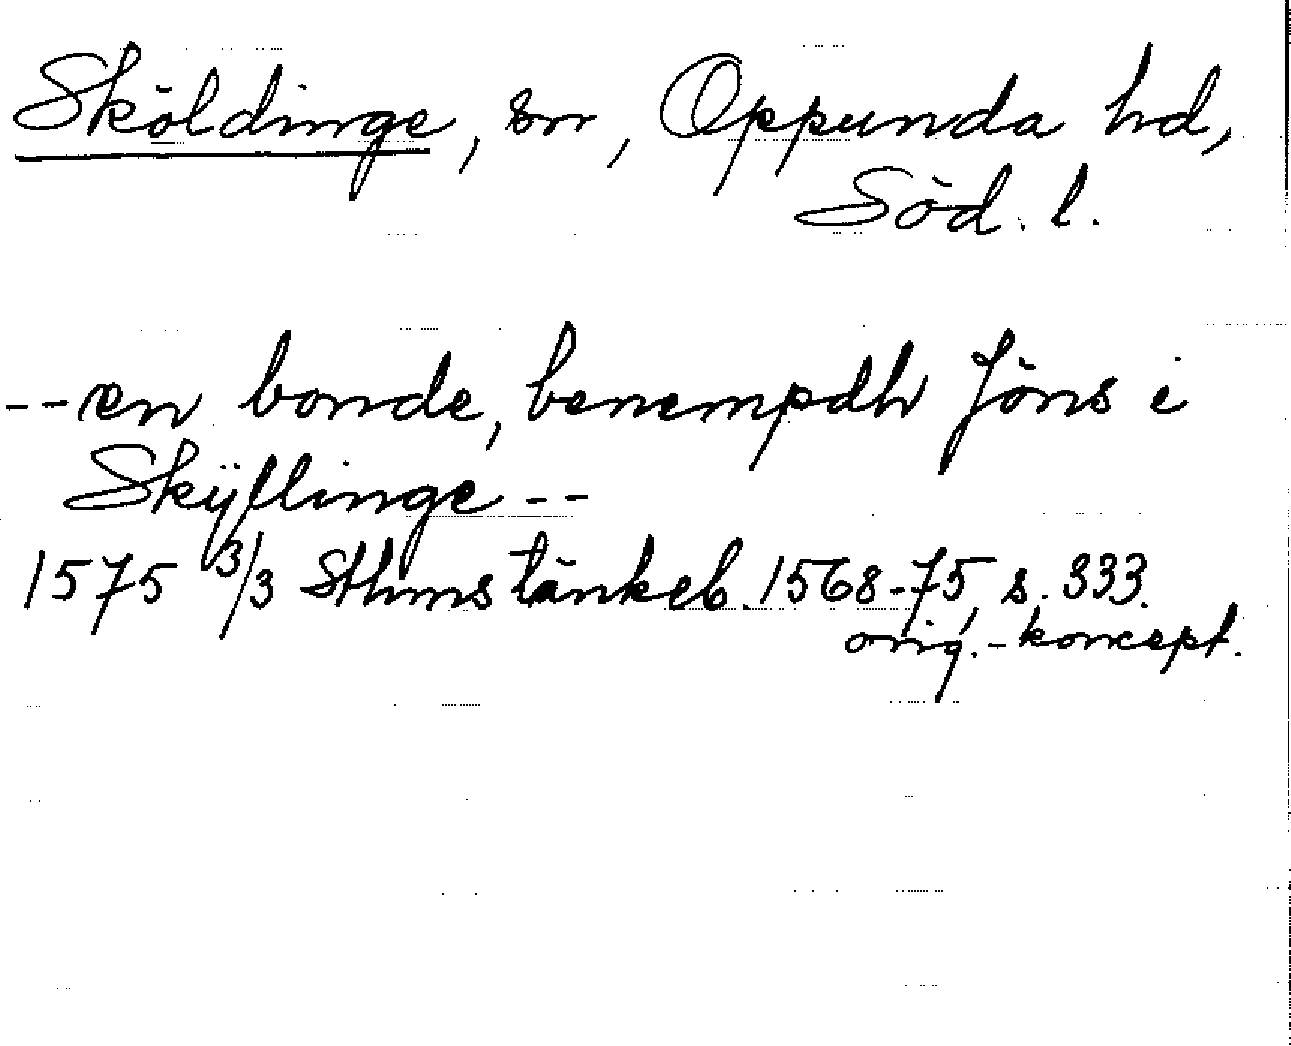 Sköldinge, sn, Oppunda hd,
Söd. l.
--en bonde, benempdh Jöns i
Skÿllinge--
1575 3/3 Sthms tänkeb. 1568-75, s. 333.
orig.-koncept.